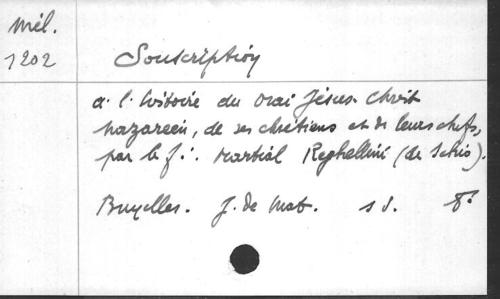 Mél.
1202
Souscription
à l'histoire du vrai Jésus-Christ
nazaréen, de ses chrétiens et de leurs chefs,
par le f∴ Martial Reghellini (de Schio).
Bruxelles. J. de Mat. s d. 8°